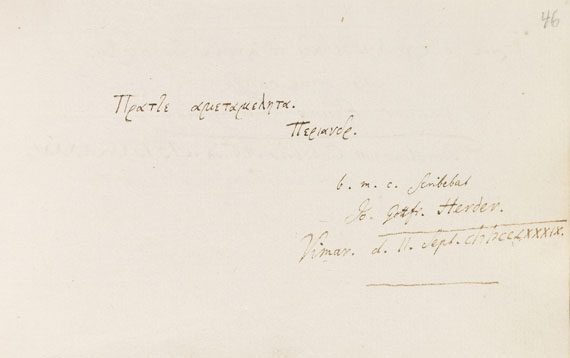 46
Πρατϊε αμεταμελητα.
Περιανδρ.
b. m. c. scribebat
Jo. Gottfr. Herder.
Vimar. d. 11. Sept. CIƆIƆCCLXXXIX.